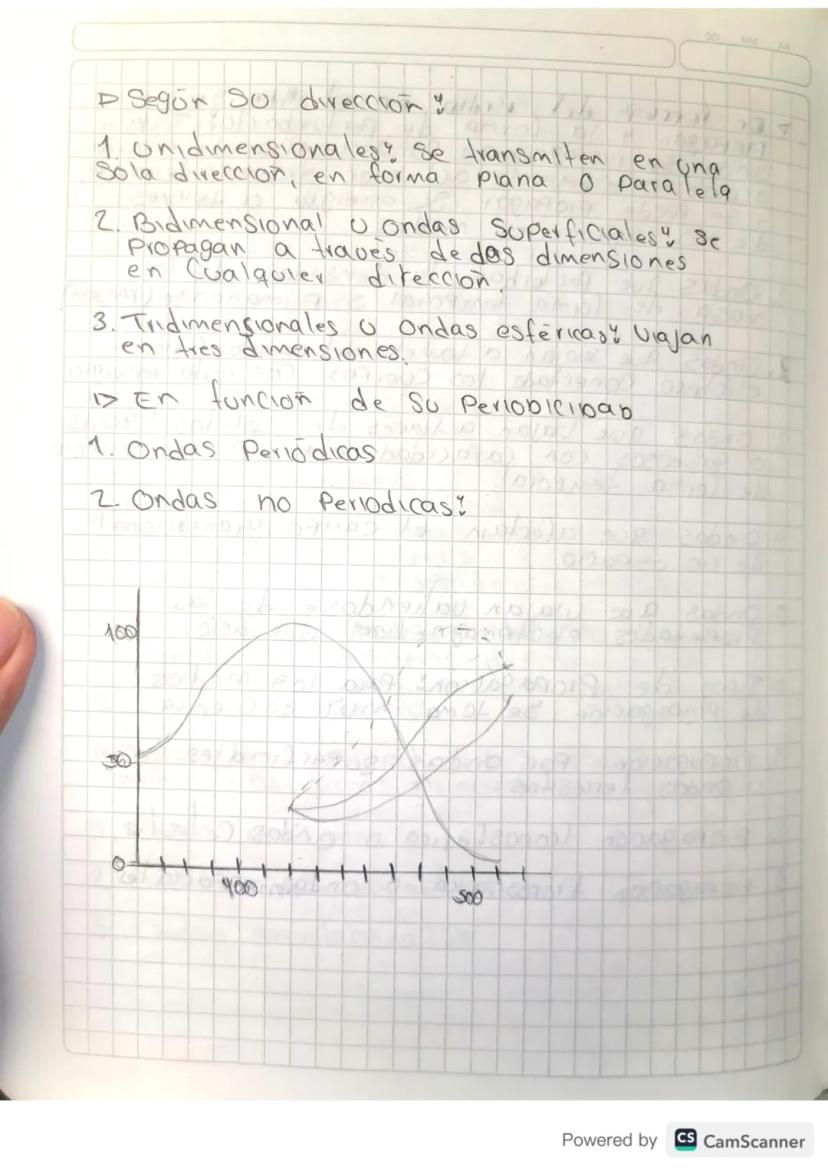 ▷ Según su dirección:
1. Unidimensionales: se transmiten en una
sola dirección, en forma plana o paralela
2. Bidimensional u ondas superficiales: se
propagan a través de dos dimensiones
en cualquier dirección.
3. Tridimensionales u ondas esféricas: viajan
en tres dimensiones.
▷ En función de su PerioDiciDaD
1. Ondas Periódicas
2. Ondas no Periodicas:
100
50
0
400
500
Powered by CS CamScanner